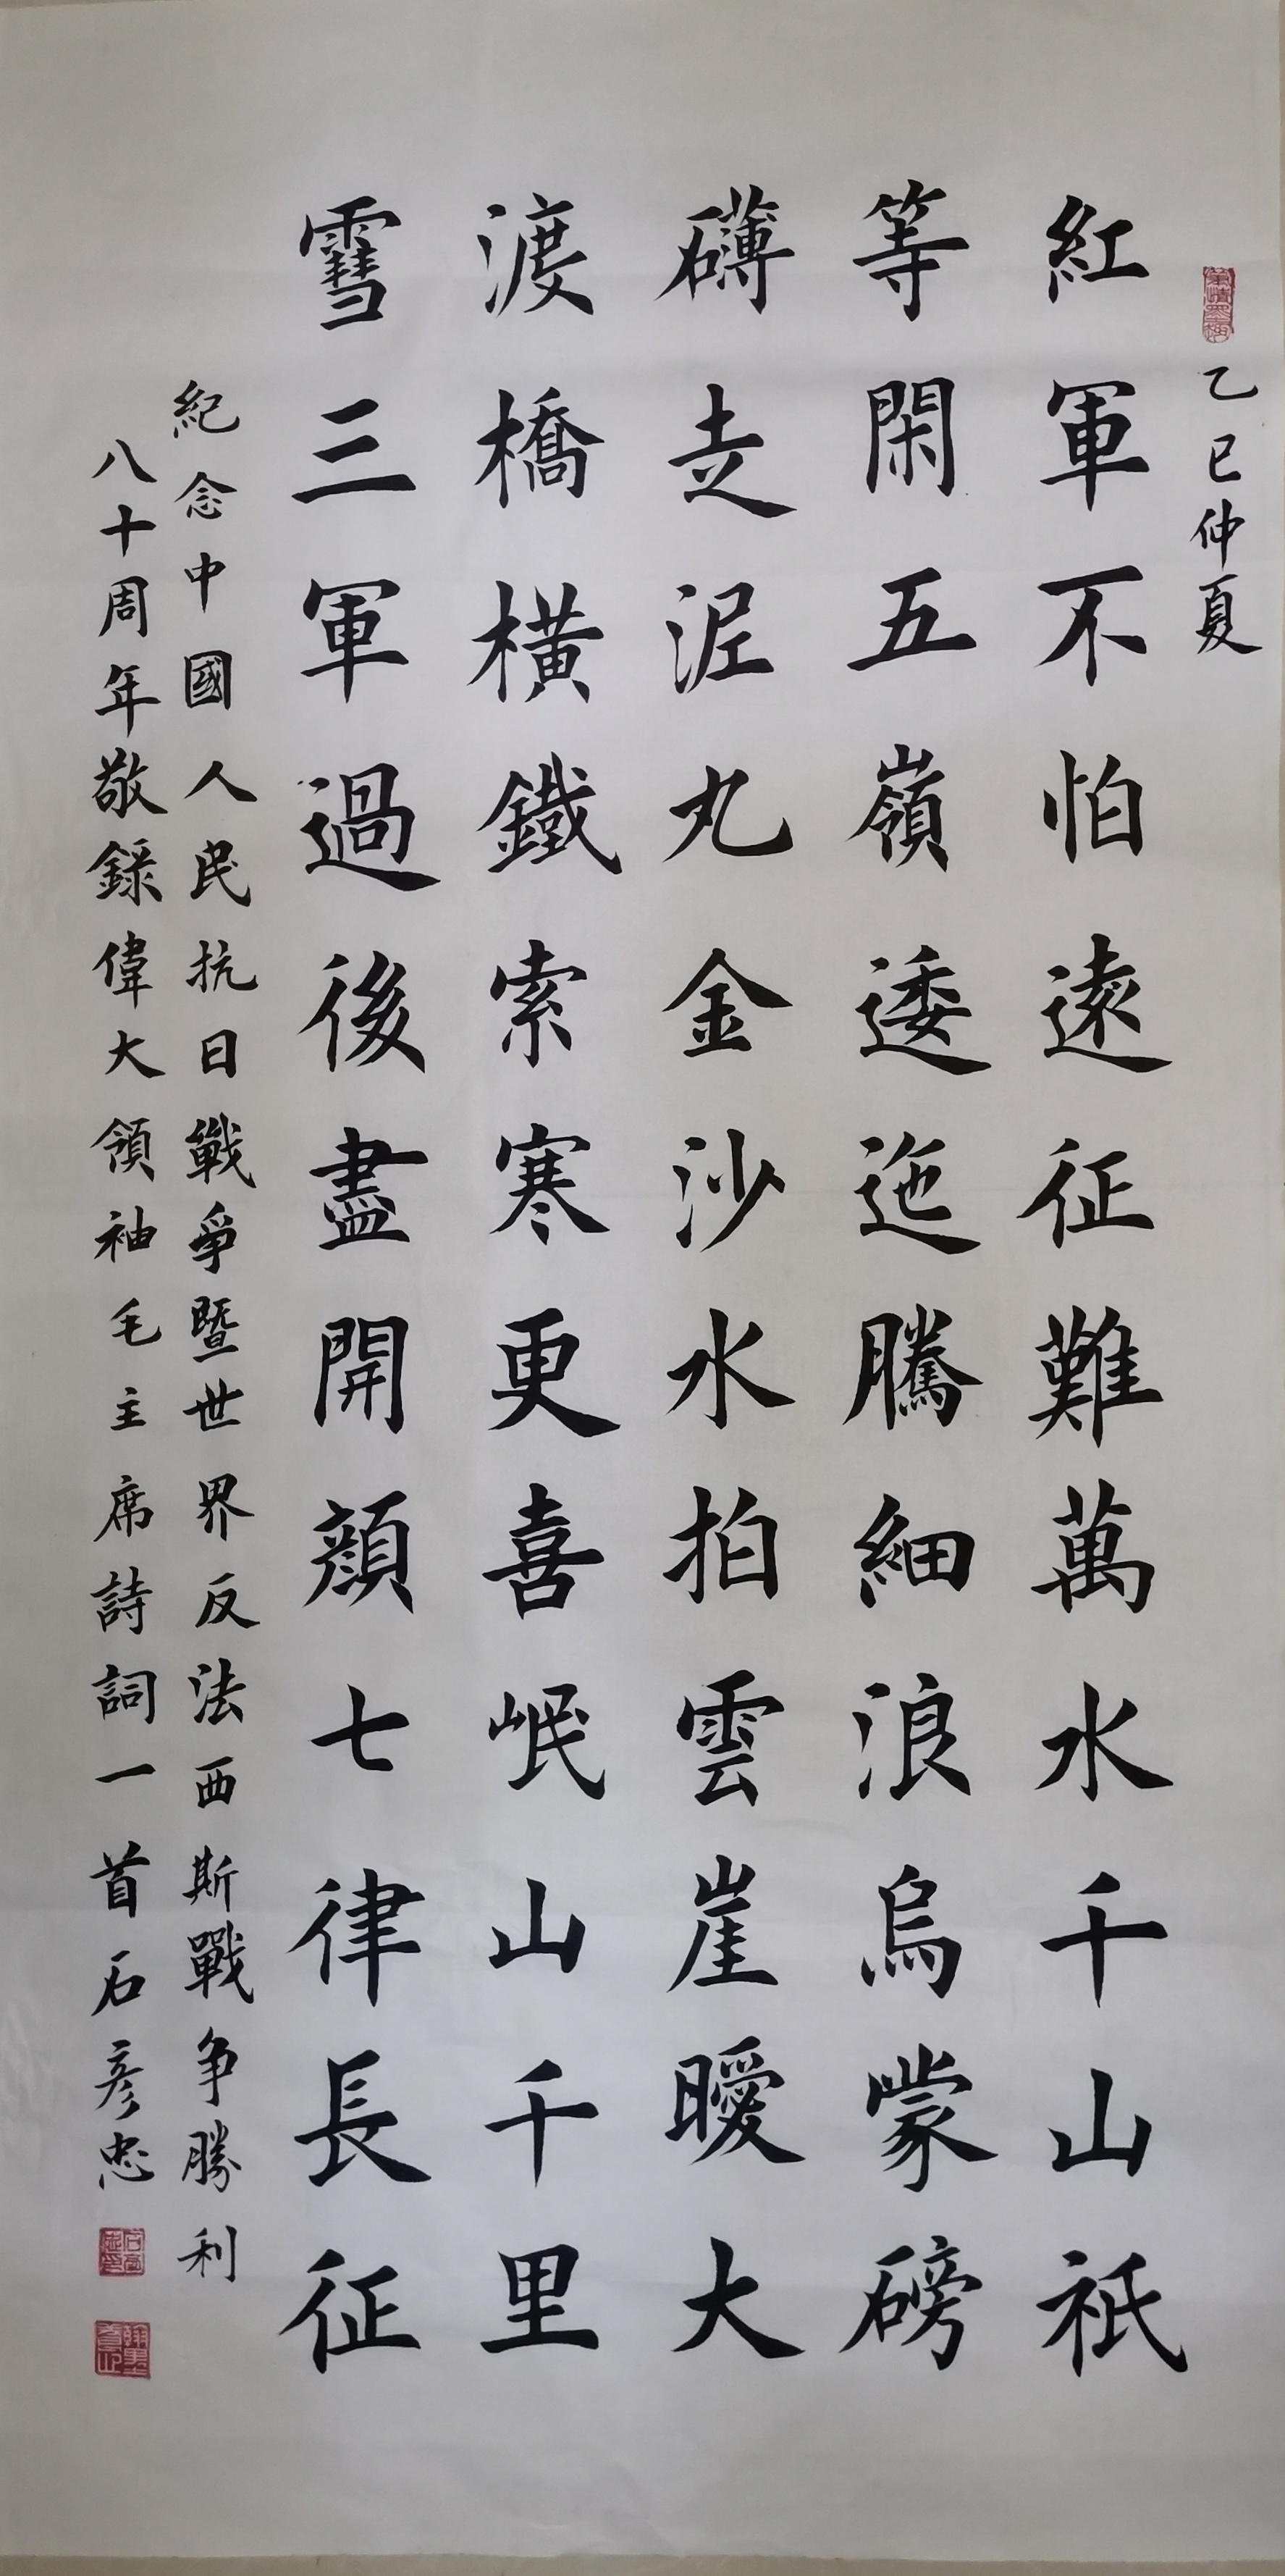 乙巳仲夏
紅軍不怕遠征難萬水千山祇
等閑五嶺逶迤騰細浪烏蒙磅
礴走泥丸金沙水拍雲崖暖大
渡橋橫鐵索寒更喜岷山千里
雪三軍過後盡開顏七律長征
紀念中國人民抗日戰爭暨世界反法西斯戰争勝利
八十周年敬錄偉大領袖毛主席詩詞一首石彥忠